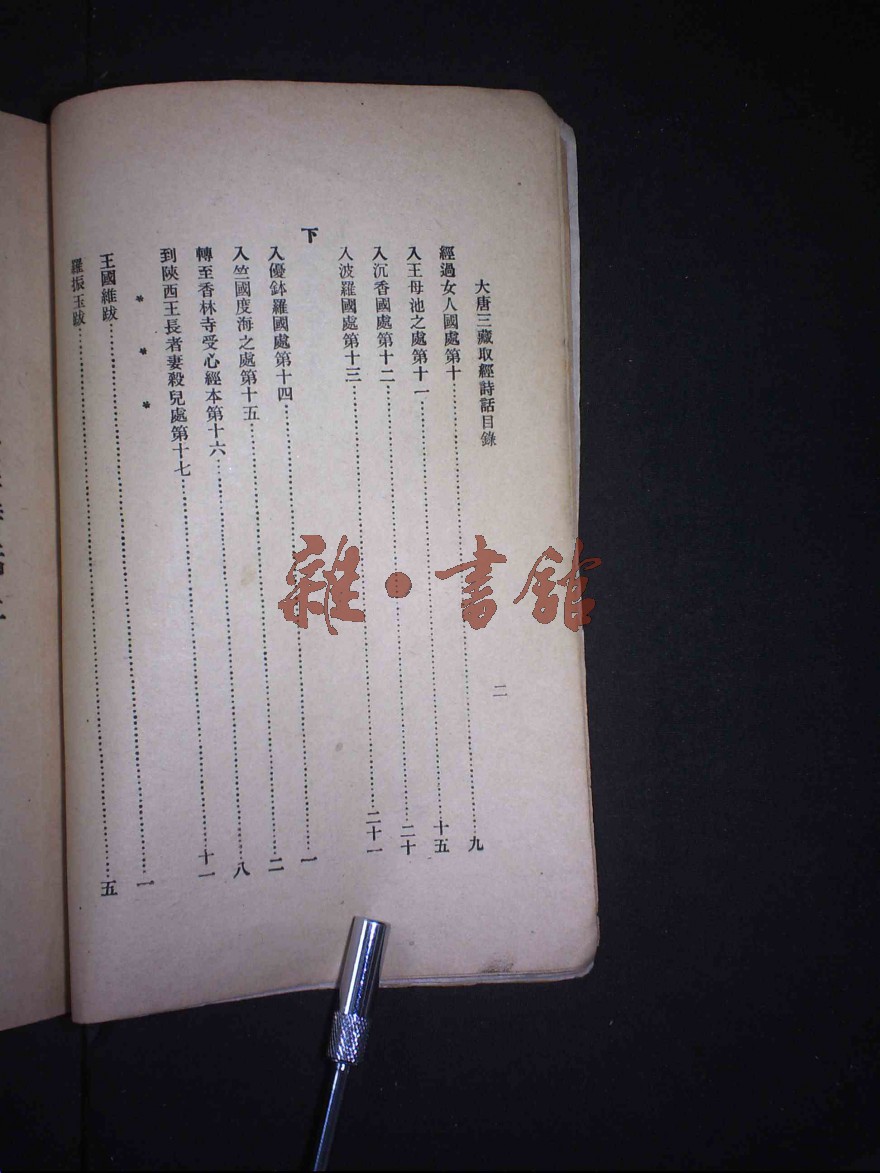 大唐三藏取經詩話目錄
二
經過女人國處第十……九
入王母池之處第十一……十五
入沉香國處第十二……二十
入波羅國處第十三……二十一
下
入優鉢羅國處第十四……一
入竺國度海之處第十五……二
轉至香林寺受心經本第十六……八
到陝西王長者妻殺兒處第十七……十一
* * *
王國維跋……一
羅振玉跋……五
雜·書館